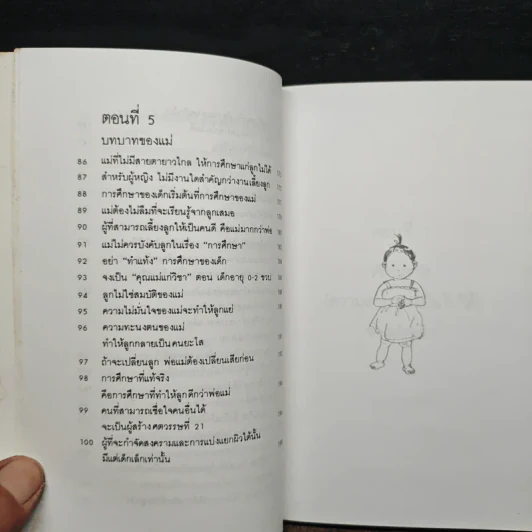 ตอนที่ 5
บทบาทของแม่
86 แม่ที่ไม่มีสายตายาวไกล ให้การศึกษาแก่ลูกไม่ได้
87 สำหรับผู้หญิง ไม่มีงานใดสำคัญกว่างานเลี้ยงลูก
88 การศึกษาของเด็กเริ่มต้นที่การศึกษาของแม่
89 แม่ต้องไม่ลืมที่จะเรียนรู้จากลูกเสมอ
90 ผู้ที่สามารถเลี้ยงลูกให้เป็นคนดี คือแม่มากกว่าพ่อ
91 แม่ไม่ควรบังคับลูกในเรื่อง "การศึกษา"
92 อย่า "ทำแท้ง" การศึกษาของเด็ก
93 จงเป็น "คุณแม่แก่วิชา" ตอน เด็กอายุ 0-2 ขวบ
94 ลูกไม่ใช่สมบัติของแม่
95 ความไม่มั่นใจของแม่จะทำให้ลูกแย่
96 ความทะนงตนของแม่
ทำให้ลูกกลายเป็นคนยะโส
97 ถ้าจะเปลี่ยนลูก พ่อแม่ต้องเปลี่ยนเสียก่อน
98 การศึกษาที่แท้จริง
คือการศึกษาที่ทำให้ลูกดีกว่าพ่อแม่
99 คนที่สามารถเชื่อใจคนอื่นได้
จะเป็นผู้สร้างศตวรรษที่ 21
100 ผู้ที่จะกำจัดสงครามและการแบ่งแยกผิวได้นั้น
มีแต่เด็กเล็กเท่านั้น